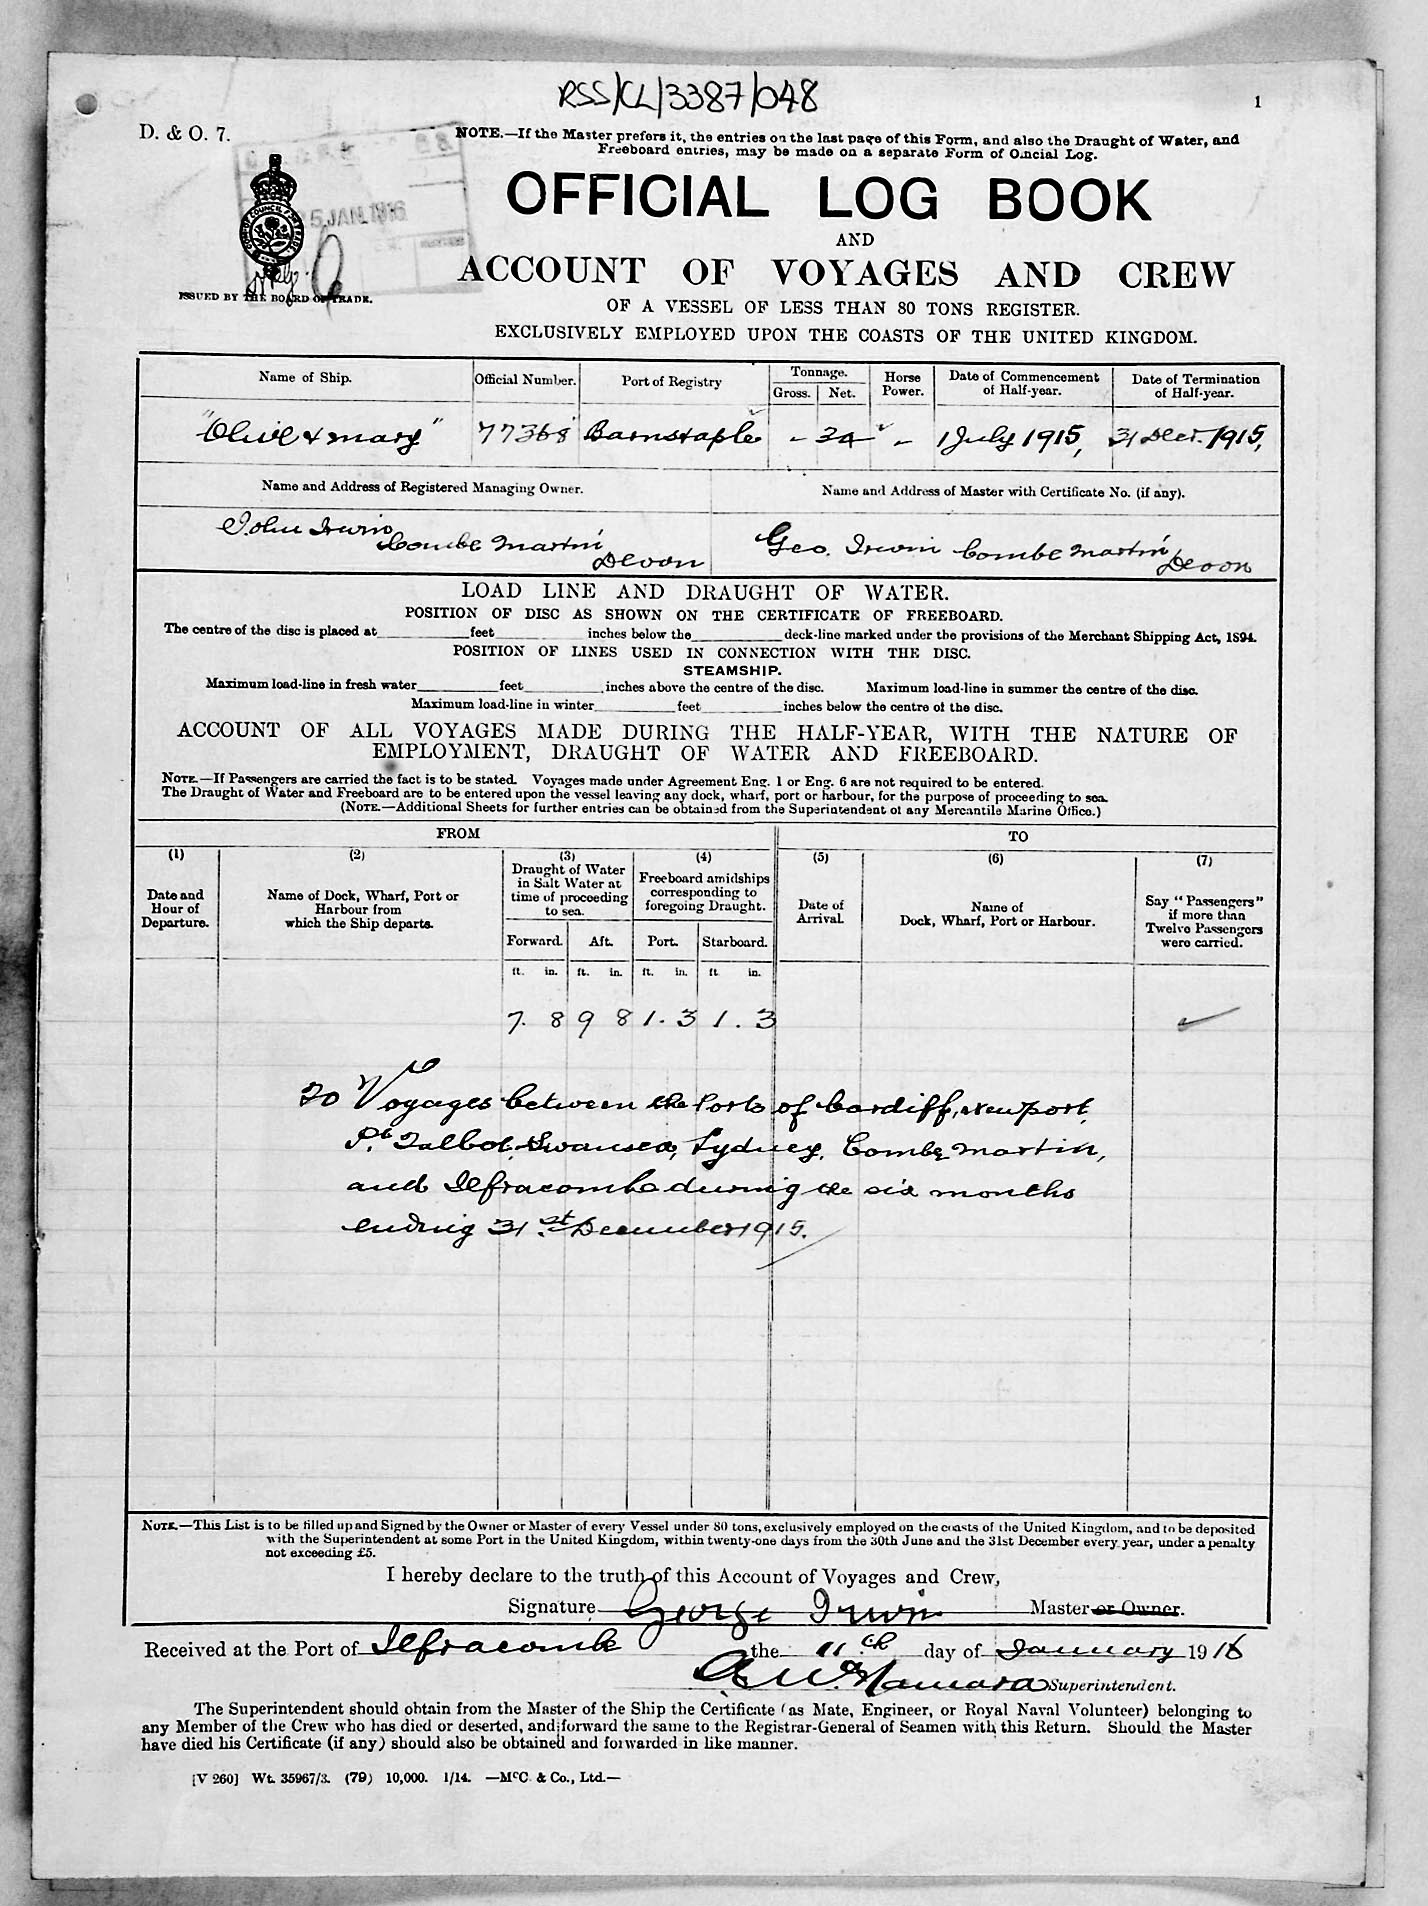 RSS/CL/3387/048
1
D. & O. 7.
NOTE.—If the Master prefers it, the entries on the last page of this Form, and also the Draught of Water, and
Freeboard entries, may be made on a separate Form of Official Log.
5 JAN. 1916
OFFICIAL LOG BOOK
AND
ACCOUNT OF VOYAGES AND CREW
ISSUED BY THE BOARD OF TRADE.
OF A VESSEL OF LESS THAN 80 TONS REGISTER.
EXCLUSIVELY EMPLOYED UPON THE COASTS OF THE UNITED KINGDOM.
Name of Ship. Official Number. Port of Registry Tonnage. Gross. Net. Horse Power. Date of Commencement of Half-year. Date of Termination of Half-year.
"Olive & Mary" 77368 Barnstaple - 34 - 1 July 1915, 31 Decr. 1915,
Name and Address of Registered Managing Owner. Name and Address of Master with Certificate No. (if any).
John Irwin Combe Martin Devon Geo. Irwin Combe Martin Devon
LOAD LINE AND DRAUGHT OF WATER.
POSITION OF DISC AS SHOWN ON THE CERTIFICATE OF FREEBOARD.
The centre of the disc is placed at feet inches below the deck-line marked under the provisions of the Merchant Shipping Act, 1894.
POSITION OF LINES USED IN CONNECTION WITH THE DISC.
STEAMSHIP.
Maximum load-line in fresh water feet inches above the centre of the disc. Maximum load-line in summer the centre of the disc.
Maximum load-line in winter feet inches below the centre of the disc.
ACCOUNT OF ALL VOYAGES MADE DURING THE HALF-YEAR, WITH THE NATURE OF
EMPLOYMENT, DRAUGHT OF WATER AND FREEBOARD.
NOTE.—If Passengers are carried the fact is to be stated. Voyages made under Agreement Eng. 1 or Eng. 6 are not required to be entered.
The Draught of Water and Freeboard are to be entered upon the vessel leaving any dock, wharf, port or harbour, for the purpose of proceeding to sea.
(NOTE.—Additional Sheets for further entries can be obtained from the Superintendent of any Mercantile Marine Office.)
FROM TO
(1) (2) (3) (4) (5) (6) (7)
Date and Hour of Departure. Name of Dock, Wharf, Port or Harbour from which the Ship departs. Draught of Water in Salt Water at time of proceeding to sea. Freeboard amidships corresponding to foregoing Draught. Date of Arrival. Name of Dock, Wharf, Port or Harbour. Say "Passengers" if more than Twelve Passengers were carried.
Forward. Aft. Port. Starboard.
ft. in. ft. in. ft. in. ft. in.
7. 8 9 8 1. 3 1. 3
20 Voyages between the Ports of Cardiff, Newport
Pt. Talbot, Swansea, Lydney, Combe Martin,
and Ilfracombe during the six months
ending 31st December 1915.
NOTE.—This List is to be filled up and Signed by the Owner or Master of every Vessel under 80 tons, exclusively employed on the coasts of the United Kingdom, and to be deposited
with the Superintendent at some Port in the United Kingdom, within twenty-one days from the 30th June and the 31st December every year, under a penalty
not exceeding £5.
I hereby declare to the truth of this Account of Voyages and Crew,
Signature George Irwin Master or Owner.
Received at the Port of Ilfracombe the 11th day of January 1916
Superintendent.
The Superintendent should obtain from the Master of the Ship the Certificate (as Mate, Engineer, or Royal Naval Volunteer) belonging to
any Member of the Crew who has died or deserted, and forward the same to the Registrar-General of Seamen with this Return. Should the Master
have died his Certificate (if any) should also be obtained and forwarded in like manner.
[V 260] Wt. 35967/3. (79) 10,000. 1/14. —McC. & Co., Ltd.—